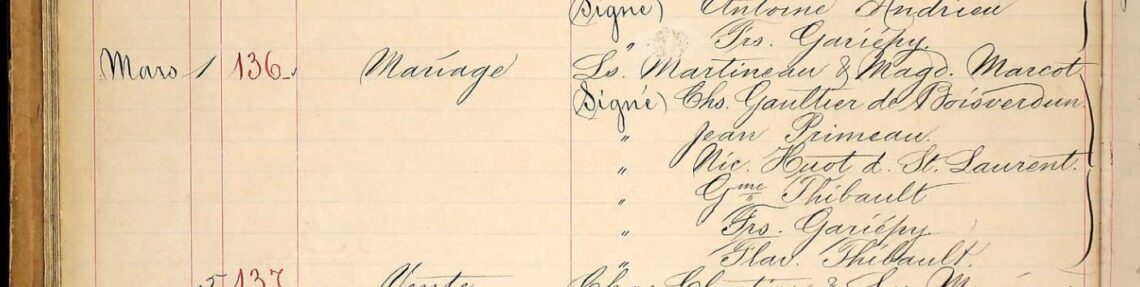 (Signé) Antoine Andrieu
" Frs. Gariépy.
Mars 1 136 Mariage Ls. Martineau & Magd. Marcot
(Signé) Chs. Gaultier de Boisverdun
" Jean Primeau.
" Nic. Huot d. St. Laurent.
" Gme Thibault
" Frs. Gariépy
" Flav. Thibault.
5 137 Vente